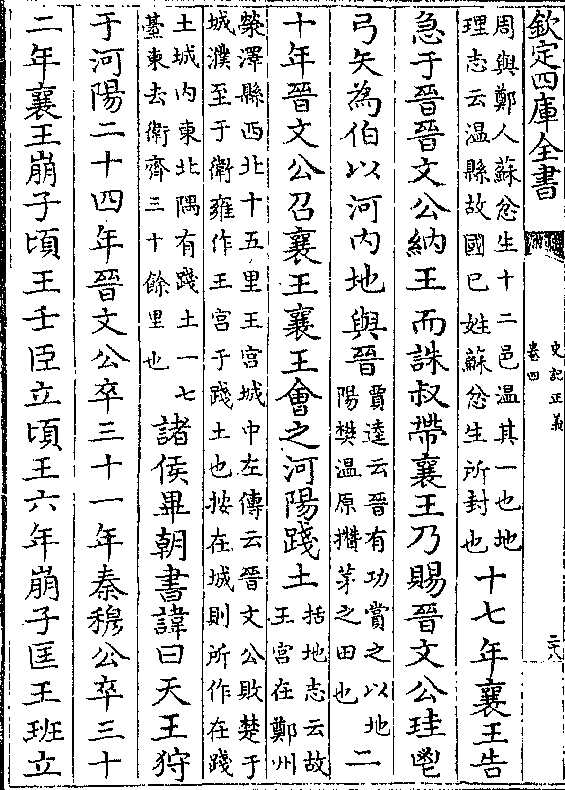 欽定四庫全書
史記正義
卷四
二十八
周與鄭人蘇忿生十二邑温其一也地
理志云温縣故國已姓蘇忿生所封也
十七年襄王告
急于晉晉文公納王而誅叔帶襄王乃賜晉文公珪鬯
弓矢為伯以河内地與晉
賈逵云晉有功賞之以地
陽樊温原攢茅之田也
二
十年晉文公召襄王襄王會之河陽踐土
括地志云故
王宫在鄭州
滎澤縣西北十五里王宫城中左傳云晉文公敗楚于
城濮至于衡雍作王宫于踐土也按在城則所作在踐
土城内東北隅有踐土一七
臺東去衛齊三十餘里也
諸侯畢朝書諱曰天王狩
于河陽二十四年晉文公卒三十一年秦穆公卒三十
二年襄王崩子頃王壬臣立頃王六年崩子匡王班立